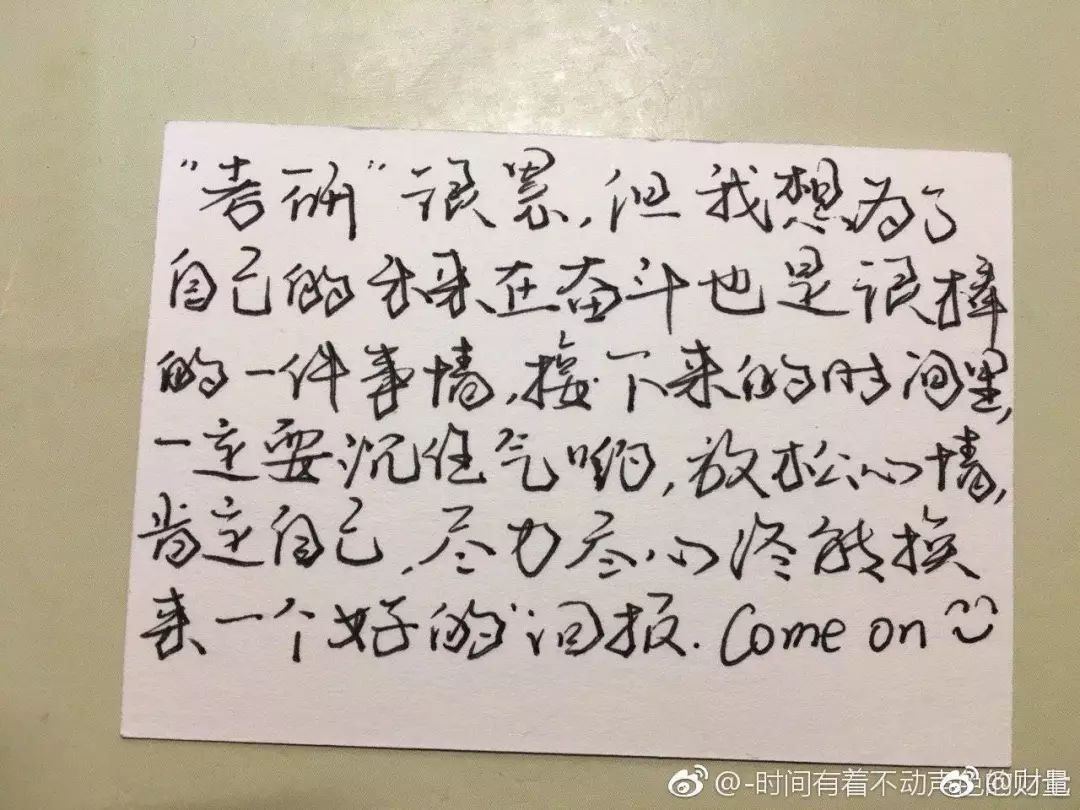 “考研”很累,但我想为了
自己的未来在奋斗也是很棒
的一件事情,接下来的时间里,
一定要沉住气哟,放松心情,
肯定自己,尽力尽心终能换
来一个好的回报. Come on
@-时间有着不动声色的财